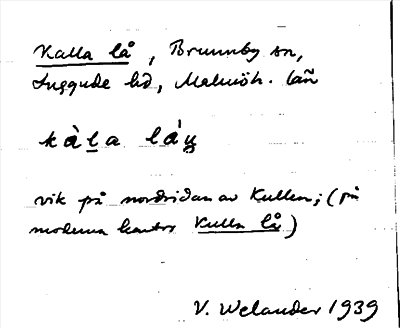 Kalla lå, Brunnby sn,
Luggude hd, Malmöh. län
kàla láų
vik på nordsidan av Kullen; (på
moderna kartor Kulla lå)
V. Welander 1939